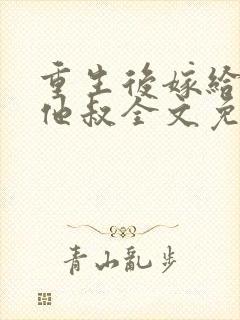 重生後嫁給
他叔全文免
青山亂步